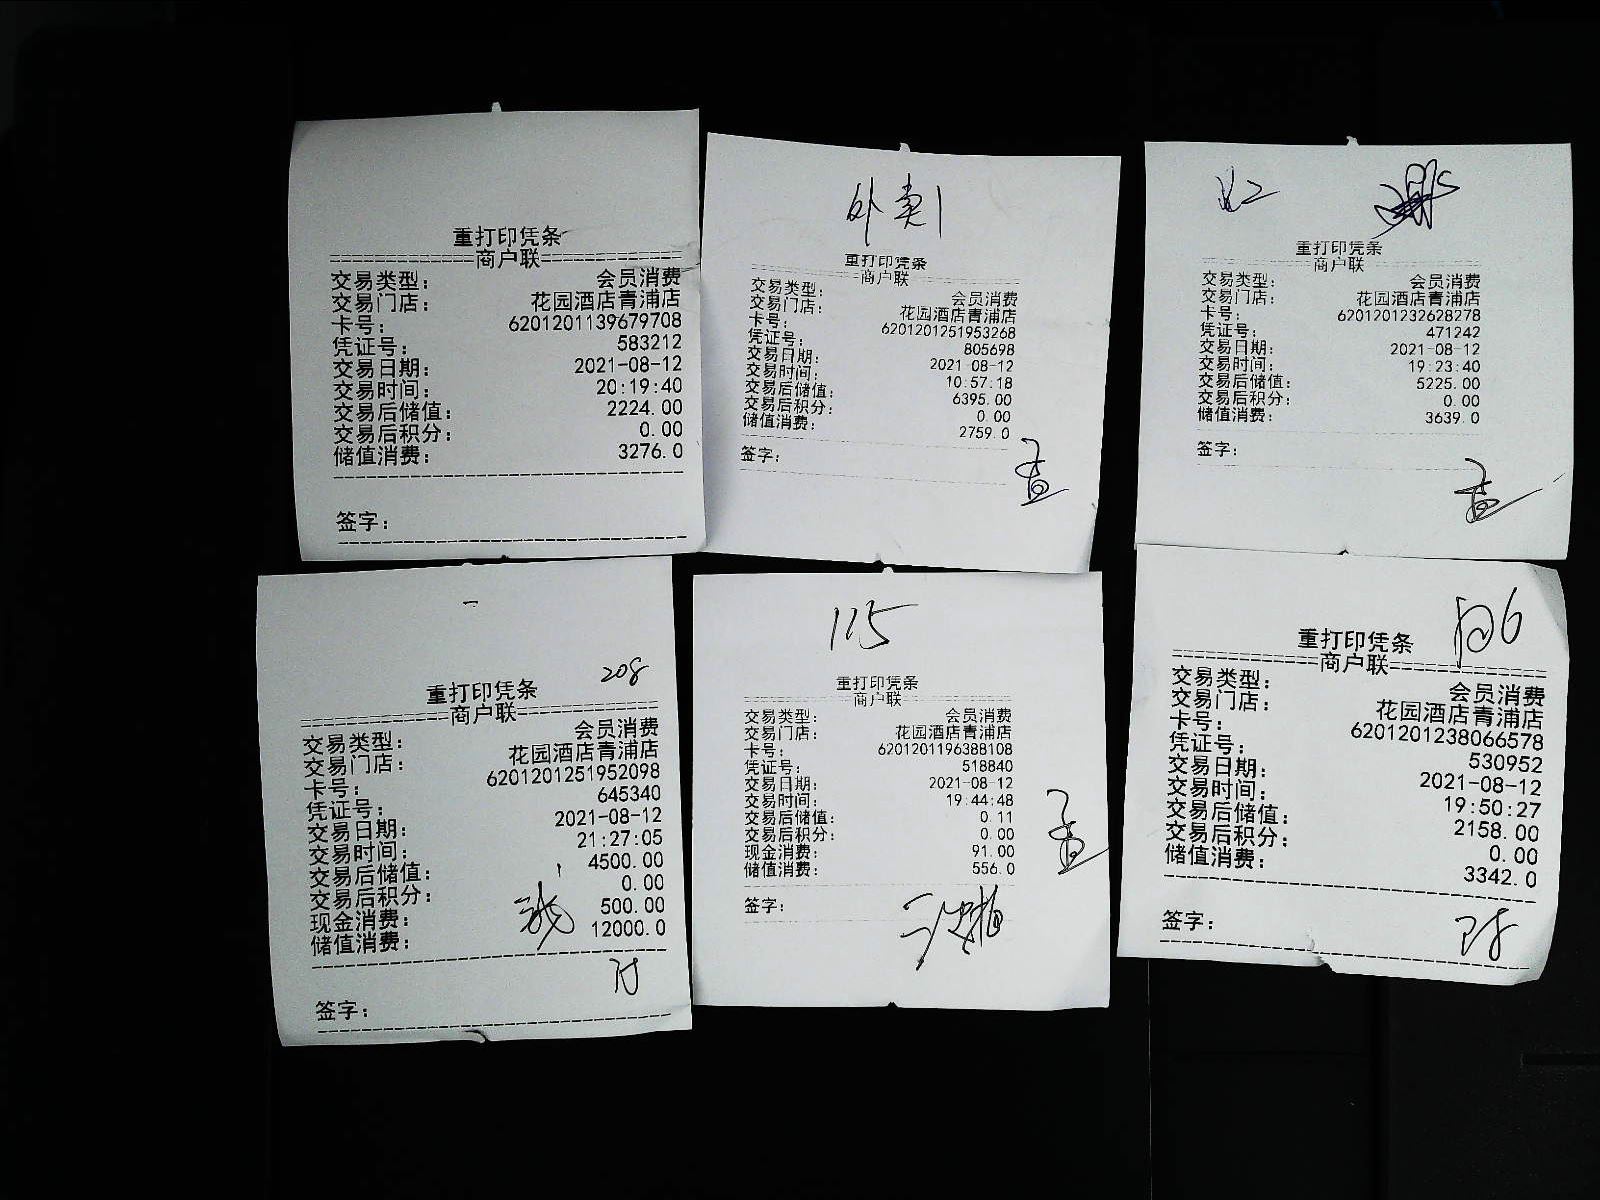 重打印凭条
商户联
交易类型： 会员消费
交易门店： 花园酒店青浦店
卡号： 6201201139679708
凭证号： 583212
交易日期： 2021-08-12
交易时间： 20:19:40
交易后储值： 2224.00
交易后积分： 0.00
储值消费： 3276.0
签字：
外卖1
重打印凭条
商户联
交易类型： 会员消费
交易门店： 花园酒店青浦店
卡号： 6201201251953268
凭证号： 805698
交易日期： 2021-08-12
交易时间： 10:57:18
交易后储值： 6395.00
交易后积分： 0.00
储值消费： 2759.0
签字：
重打印凭条
商户联
交易类型： 会员消费
交易门店： 花园酒店青浦店
卡号： 6201201232628278
凭证号： 471242
交易日期： 2021-08-12
交易时间： 19:23:40
交易后储值： 5225.00
交易后积分： 0.00
储值消费： 3639.0
签字：
208
重打印凭条
商户联
交易类型： 会员消费
交易门店： 花园酒店青浦店
卡号： 6201201251952098
凭证号： 645340
交易日期： 2021-08-12
交易时间： 21:27:05
交易后储值： 4500.00
交易后积分： 0.00
现金消费： 500.00
储值消费： 12000.0
签字：
115
重打印凭条
商户联
交易类型： 会员消费
交易门店： 花园酒店青浦店
卡号： 6201201196388108
凭证号： 518840
交易日期： 2021-08-12
交易时间： 19:44:48
交易后储值： 0.11
交易后积分： 0.00
现金消费： 91.00
储值消费： 556.0
签字：
重打印凭条
商户联
交易类型： 会员消费
交易门店： 花园酒店青浦店
卡号： 6201201238066578
凭证号： 530952
交易日期： 2021-08-12
交易时间： 19:50:27
交易后储值： 2158.00
交易后积分： 0.00
储值消费： 3342.0
签字：